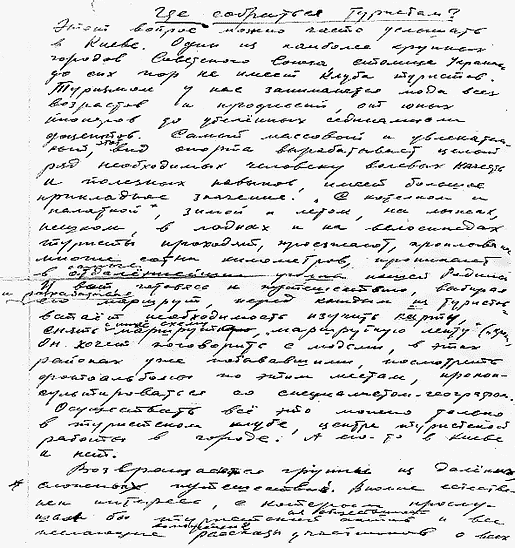 Где собраться туристам?
Этот вопрос можно часто услышать
в Киеве. Один из наиболее крупных
городов Советского Союза столица Украины
до сих пор не имеет Клуба туристов.
Туризмом у нас занимаются люди всех
возрастов и профессий, от юных
пионеров до убелённых сединами
доцентов. Самый массовой и увлекатель-
ный, этот вид спорта вырабатывает целый
ряд необходимых человеку волевых качеств
и полезных навыков, имеет большое
прикладное значение. „С котелком и
палаткой", зимой и летом, на лыжах,
пешком, в лодках и на велосипедах
туристы проходят, проезжают, проплывают
многие сотни километров, проникают
в отдалённейшие нашей Родины
И вот готовясь к путешествию, выбирая
его маршрут, перед каждым из туристов
встаёт необходимость изучить карту,
снять маршрутную ленту
Он хочет поговорить с людьми, в этих
районах уже побывавшими, посмотреть
фотоальбомы по этим местам, прокон-
сультироваться со специалистом-географом.
Осуществить всё это можно только
в туристском клубе, центре туристской
работы в городе. А его-то в Киеве
и нет.
Возвращаются группы из далёких
сложных путешествий. Вполне естестве-
нен интерес, с которым прослу-
шал бы туристский актив и все
желающие рассказы участников о всех